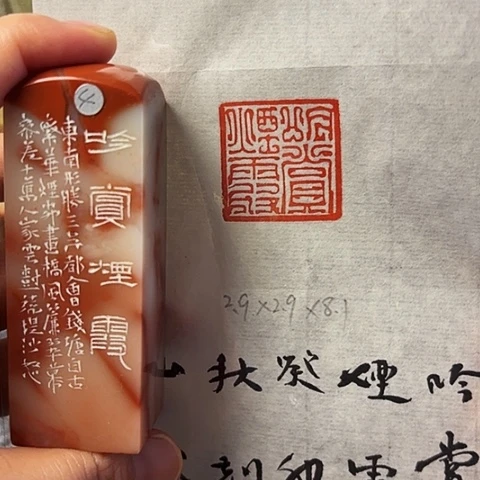 4
吟賞煙霞
東南形勝三吳都會錢塘自古
繁華煙柳畫橋風簾翠幕
參差十萬人家雲樹繞堤沙怒
吟賞
煙霞
2.9×2.9×8.1
吟賞
煙霞
癸卯
秋刻